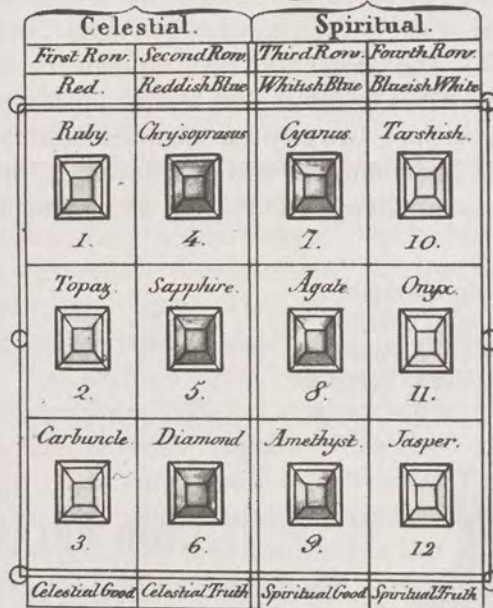 Celestial. Spiritual.
First Row. Second Row. Third Row. Fourth Row.
Red. Reddish Blue Whitish Blue Blueish White
Ruby. Chrysoprasus Cyanus. Tarshish.
1. 4. 7. 10.
Topaz. Sapphire. Agate Onyx.
2. 5. 8. 11.
Carbuncle. Diamond Amethyst. Jasper.
3. 6. 9. 12
Celestial Good Celestial Truth Spiritual Good Spiritual Truth